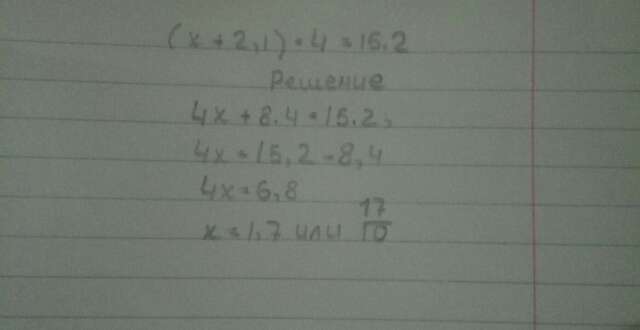 (x + 2,1) • 4 = 15.2
Решение
4x + 8.4 = 15.2,
4x = 15,2 - 8,4
4x = 6,8
x = 1,7 или 17/10